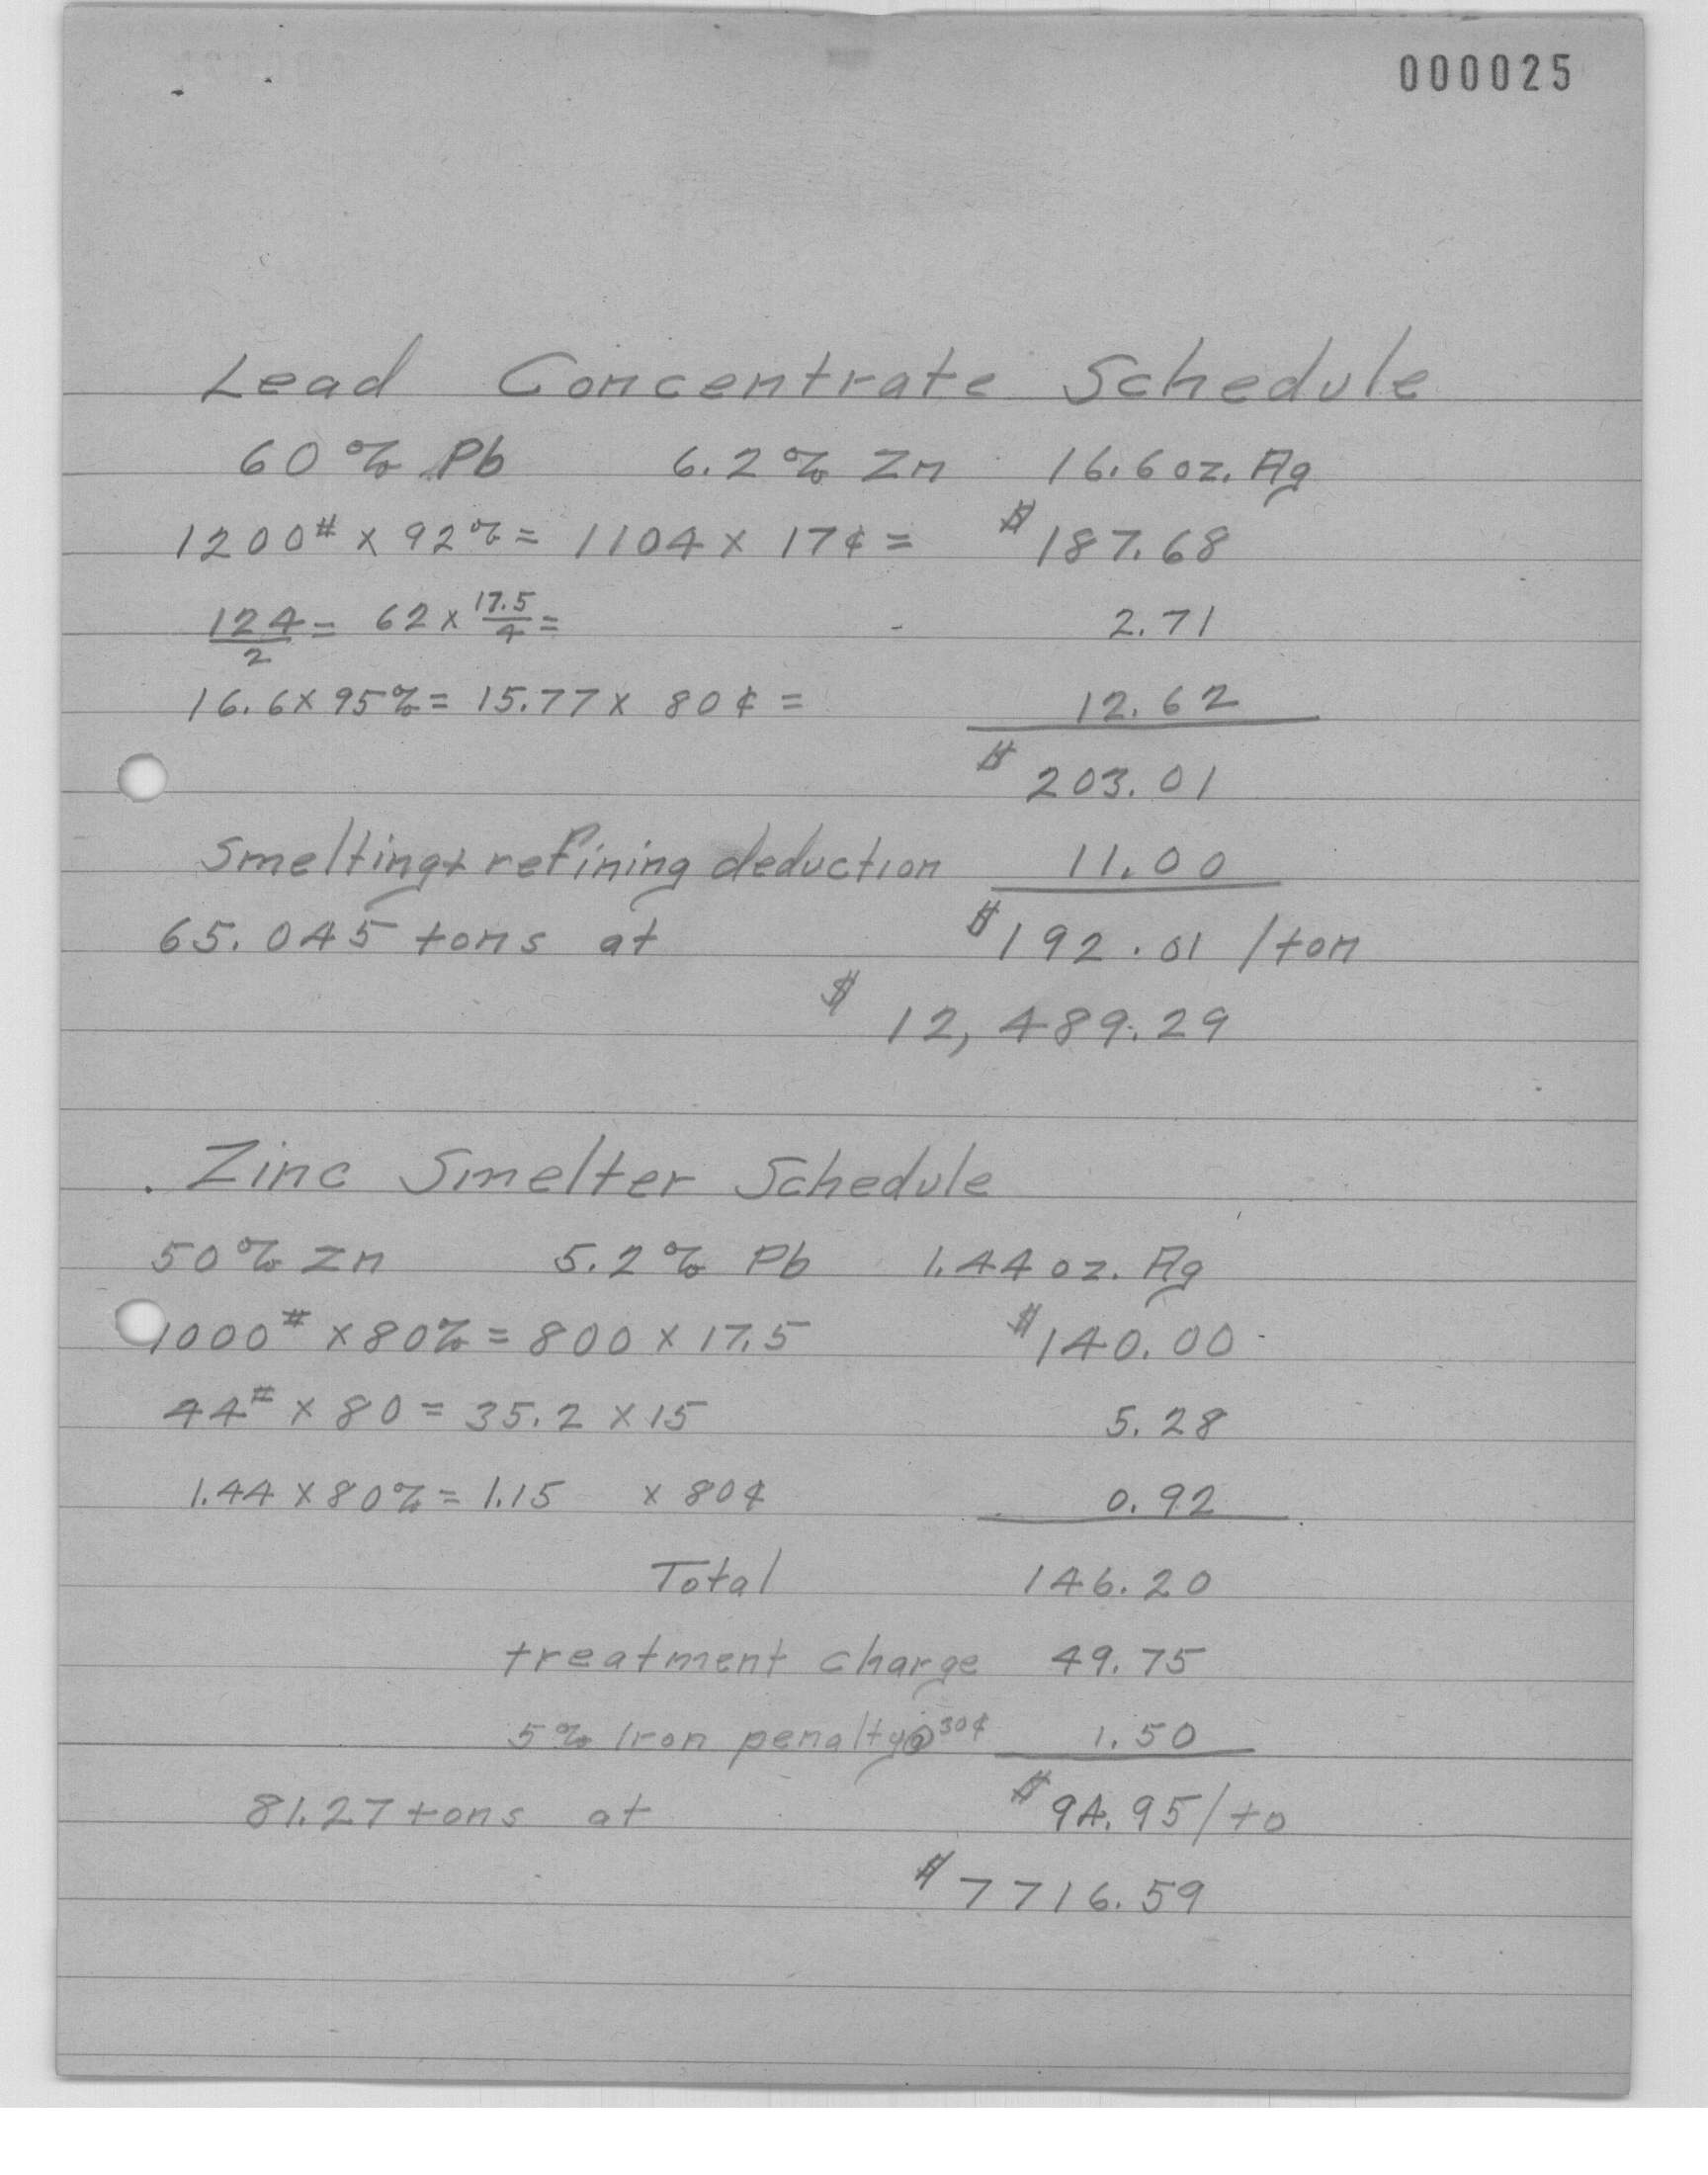 000025
Lead Concentrate Schedule
60% Pb 6.2% Zn 16.6 oz. Ag
1200# x 92% = 1104 x 17¢ = $187.68
124/2 = 62 x 17.5/4 = - 2.71
16.6 x 95% = 15.77 x 80¢ = 12.62
$203.01
Smelting + refining deduction 11.00
65.045 tons at $192.01 /ton
$12,489.29
Zinc Smelter Schedule
50% Zn 5.2% Pb 1.44 oz. Ag
1000# x 80% = 800 x 17.5 $140.00
44# x 80 = 35.2 x 15 5.28
1.44 x 80% = 1.15 x 80¢ 0.92
Total 146.20
treatment charge 49.75
5% Iron penalty @ 30¢ 1.50
81.27 tons at $94.95/to
$7716.59